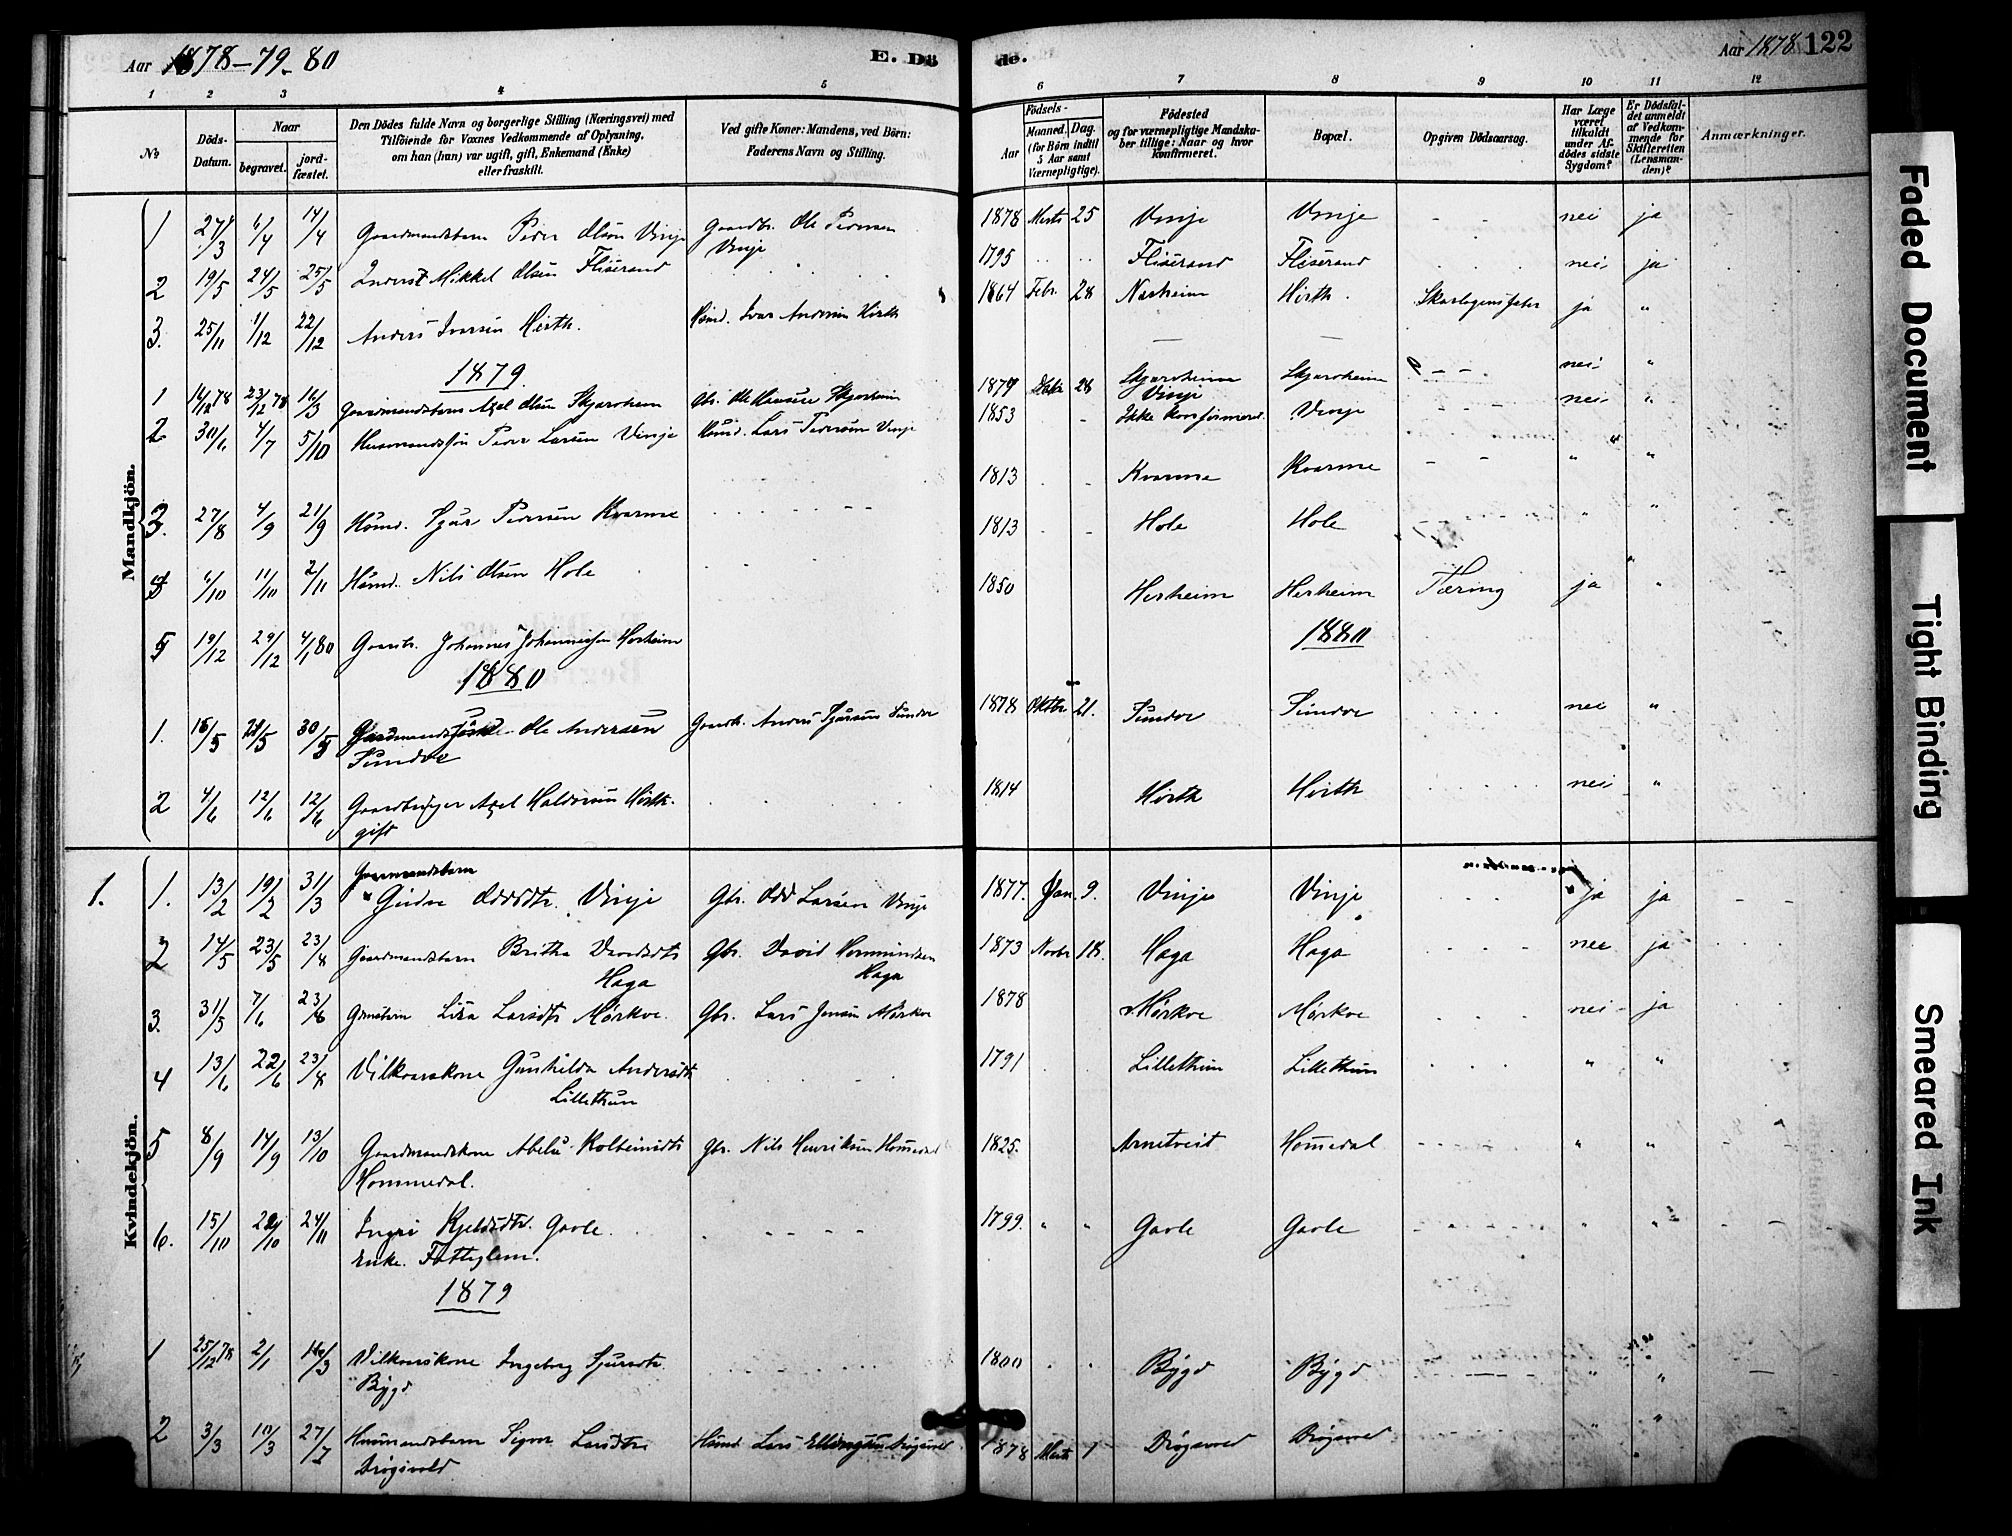 Aar 1878-79-80
E. Dö
de.
Aar 1878 122
1 2 3 4 5 6 7 8 9 10 11 12
No
Döds-Datum.
Naar
begravet.
jord-fæstet.
Den Dödes fulde Navn og borgerlige Stilling (Næringsvei) med
Tilföiende for Voxnes Vedkommende af Oplysning,
om han (hun) var ugift, gift, Enkemand (Enke)
eller fraskilt.
Ved gifte Koner: Mandens, ved Börn:
Faderens Navn og Stilling.
Födsels-
Aar
Maaned. Dag.
(for Börn indtil
5 Aar samt
Værnepligtige).
Födested
og for værnepligtige Mandska-
ber tillige: Naar og hvor
konfirmeret.
Bopæl.
Opgiven Dödsaarsag.
Har Læge
været
tilkaldt
under Af-
dödes sidste
Sygdom?
Er Dödsfal-
det anmeldt
af Vedkom-
mende for
Skifteretten
(Lensman-
den)?
Anmærkninger.
Mandkjön.
1 27/3 6/4 14/4 Gaardmandsbarn Peder Olsen Vinje Gaardbr. Ole Pedersen Vinje 1878 Marts 25 Vinje Vinje - - nei ja
2 19/5 24/5 25/5 Inderst Mikkel Olsen Fliserand 1795 Fliserand Fliserand nei ja
3. 25/11 1/12 22/12 Anders Ivarsen Hirth. Hsmd. Ivar Anderson Hirth 1864 Febr. 28 Nesheim Hirth. Skarlagensfeber ja "
1879
1 14/12 78 23/12 78 16/3 Gaardmandsbarn Axel Olsen Skjerveheim Gbr. Ole Hansen Skjerveheim 28 Vinje nei "
2 30/6 4/7 5/10 Husmandssøn Peder Larsen Vinje Husmd. Lars Pedersen Vinje 1853 Ikke konfirmeret. Vinje nei "
3. 27/8 4/9 21/9 Husmd. Sjur Pedersen Kvarme 1813 Kvarme Kvarme " "
4 6/10 11/10 2/11 Husmd. Nils Olsen Hole 1813 Hole Hole " "
5 19/12 29/12 4/1 80 Gaardb. Johannes Johannessen Herheim 1850 Herheim Herheim Tæring ja "
1880
1880
1. 16/5 30/5 Ole Andersen Sundve Gaardb. Anders Sjursen Sundve 1878 Oktbr 21. Sundve Sundve nei "
2 4/6 12/6 12/6 Gaardbruger Axel Haldorsen Hirth.
gift 1814 Hirth Hirth nei "
Kvindekjön.
1. 1. 13/2 19/2 31/3 Gaardmandsbarn
Gudve Oddsdtr. Vinje Gbr. Odd Larsen Vinje 1877. Jan. 9. Vinje Vinje ja ja
2 14/5 23/5 23/8 Gaardmandsbarn Britha Davidsdtr
Haga Gbr. David Hermundsen
Haga 1873 Novbr 18. Haga Haga nei ja
3. 31/5 7/6 23/6 Lisa Larsdtr Mørkve. Gbr. Lars Jensen Mørkve 1878 Mørkve Mørkve nei ja
4 13/6 22/6 23/8 Vilkaarskone Gunhilda Andersdtr
Lillethun 1791 Lillethun Lillethun " "
5 8/9 14/9 13/10 Gaardmandskone Abelu Kolbeinsdtr
Hommedal. Gbr. Nils Henriksen Homedal 1825. Arnetveit Homedal " "
6. 15/10 22/10 24/11 Ingri Kjeldsdtr. Gavle.
enke. Fattiglem. 1799. " " Gavle Gavle " "
1879
1 25/12 78 2/1 16/3 Vilkaarskone Ingeborg Sjursdtr.
Bygd 1800 Bygd Bygd " "
2 3/3 10/3 27/7 Husmandsbarn Signe Larsdtr.
Drøgsvold Husmd. Lars Ellingsen Drøgsvold 1878 Marts 1 Drøgsvold Drøgsvold " "
Faded Document
Tight Binding
Smeared Ink